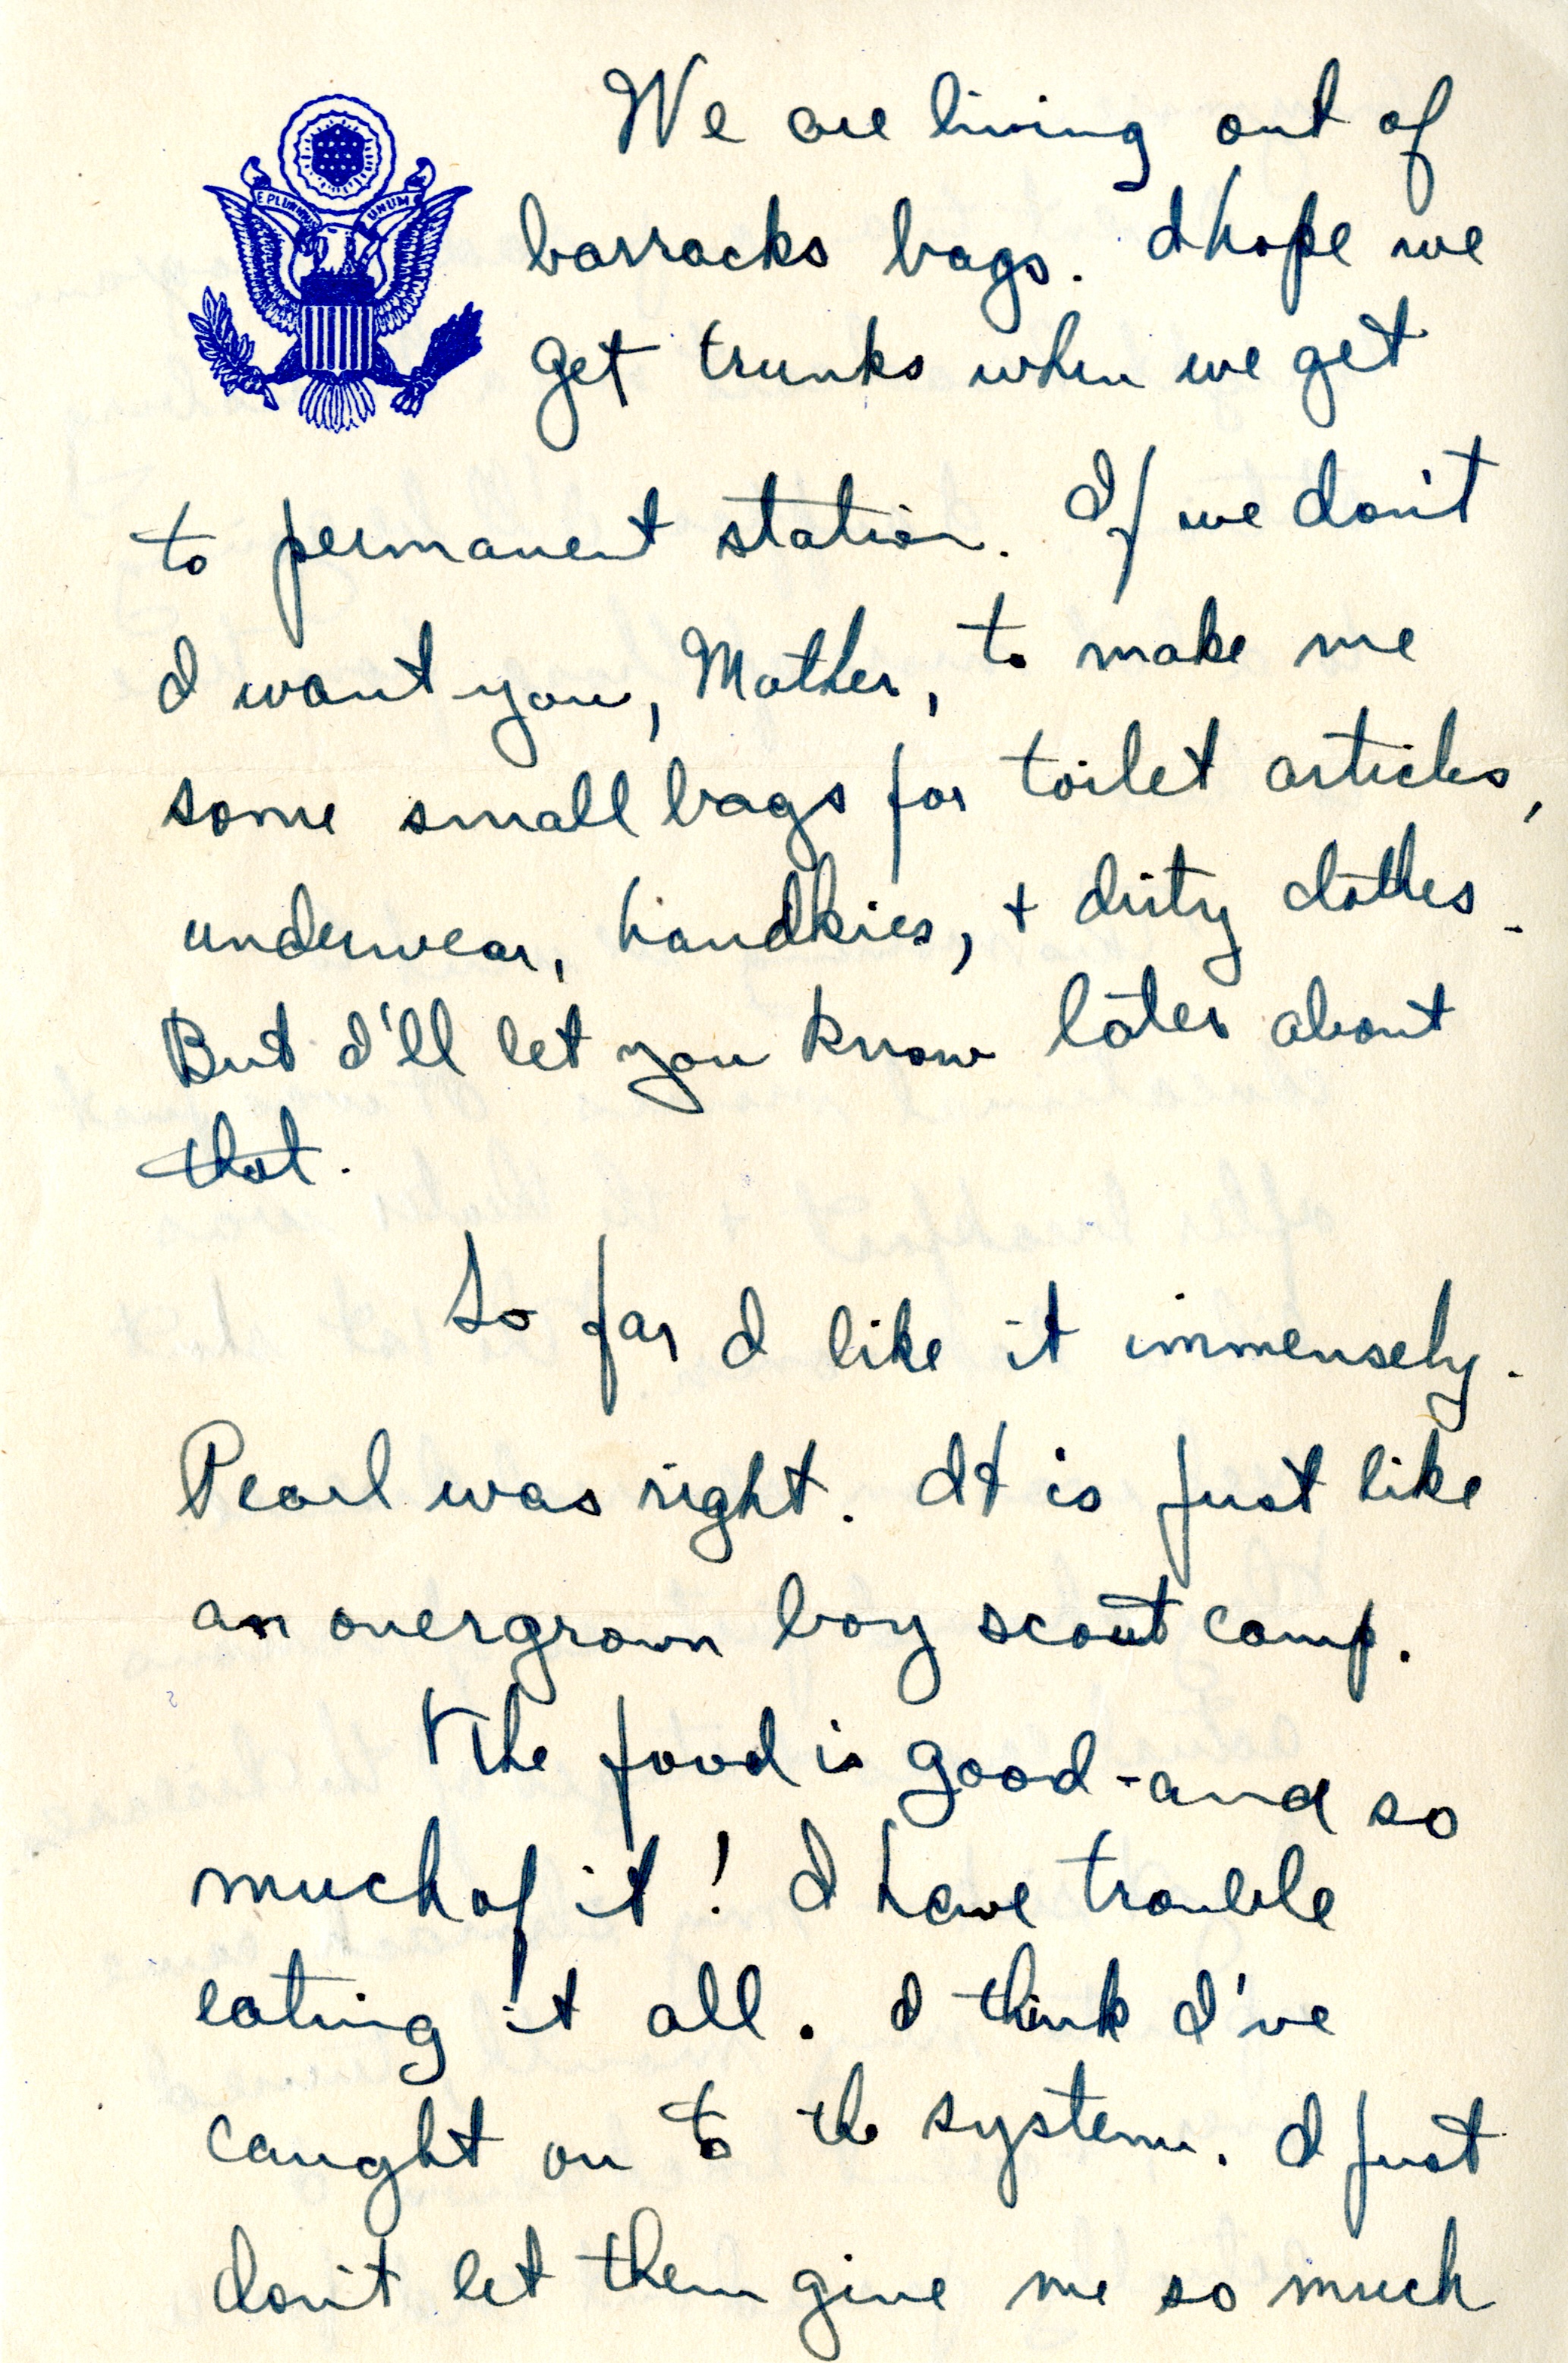 E PLURIBUS UNUM
We are living out of
barracks bags. I hope we
get trunks when we get
to permanent station. If we don't
I want you, Mother, to make me
some small bags for toilet articles,
underwear, handkies, + dirty clothes.
But I'll let you know later about
that.
So far I like it immensely.
Pearl was right. It is just like
an overgrown boy scout camp.
The food is good - and so
much of it! I have trouble
eating it all. I think I've
caught on to the system. I just
don't let them give me so much